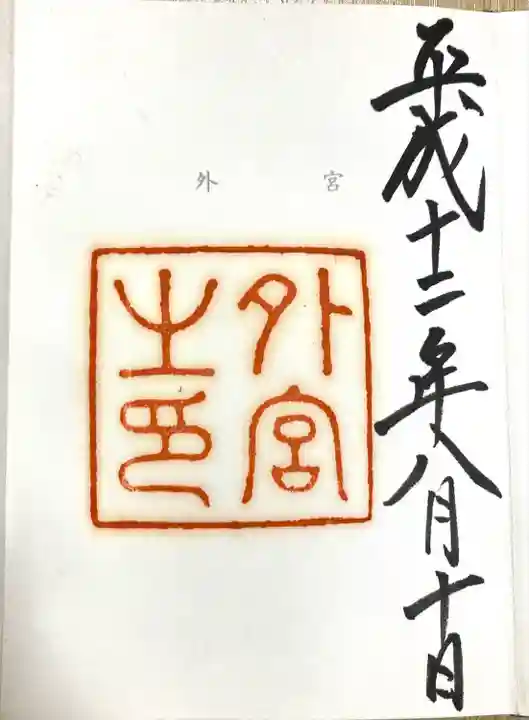 平成十二年八月十日
外宮
外宮
之印